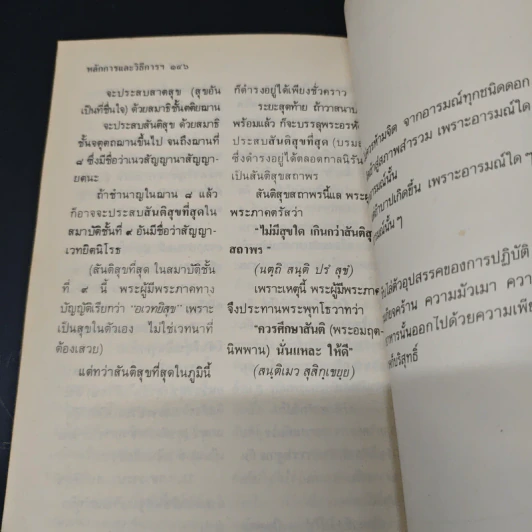 หลักการและวิธีการฯ ๑๙๖
จะประสบสาตสุข (สุขอัน
เป็นที่ชื่นใจ) ด้วยสมาธิชั้นตติยฌาน
จะประสบสันติสุข ด้วยสมาธิ
ชั้นจตุตถฌานขึ้นไป จนถึงฌานที่
๘ ซึ่งมีชื่อว่าเนวสัญญานาสัญญา-
ยตนะ
ถ้าชำนาญในฌาน ๘ แล้ว
ก็อาจจะประสบสันติสุขที่สุดใน
สมาบัติชั้นที่ ๙ อันมีชื่อว่าสัญญา-
เวทยิตนิโรธ
(สันติสุขที่สุด ในสมาบัติชั้น
ที่ ๙ นี้ พระผู้มีพระภาคทาง
บัญญัติเรียกว่า "อเวทยิสุข" เพราะ
เป็นสุขในตัวเอง ไม่ใช่เวทนาที่
ต้องเสวย)
แต่ทว่าสันติสุขที่สุดในภูมินี้
ก็ดำรงอยู่ได้เพียงชั่วคราว
ระยะสุดท้าย ถ้าวาสนาบ
พร้อมแล้ว ก็จะบรรลุพระอรหั
ประสบสันติสุขที่สุด (บรม
ซึ่งดำรงอยู่ได้ตลอดกาลนิรัน
เป็นสันติสุขสถาพร
สันติสุขสถาพรนี้แล พระผู
พระภาคตรัสว่า
"ไม่มีสุขใด เกินกว่าสันติสุ
สถาพร"
(นตฺถิ สนฺติ ปรํ สุขํ)
เพราะเหตุนี้ พระผู้มีพระภาค
จึงประทานพระพุทโธวาทว่า
"ควรศึกษาสันติ (พระอมฤต-
นิพพาน) นั่นแหละ ให้ดี"
(สนฺติเมว สุสิกฺเขยฺย)
ห้ามจิต จากอารมณ์ทุกชนิดดอก
สู่สภาพสำรวม เพราะอารมณ์ใด
อารมณ์นั้น
บาปเกิดขึ้น เพราะอารมณ์ใด ๆ
นั้น ๆ
ไล่ตัวอุปสรรคของการปฏิบัติ
คร้าน ความมัวเมา ความ
นั้นออกไปด้วยความเพีย
วิสุทธิ์